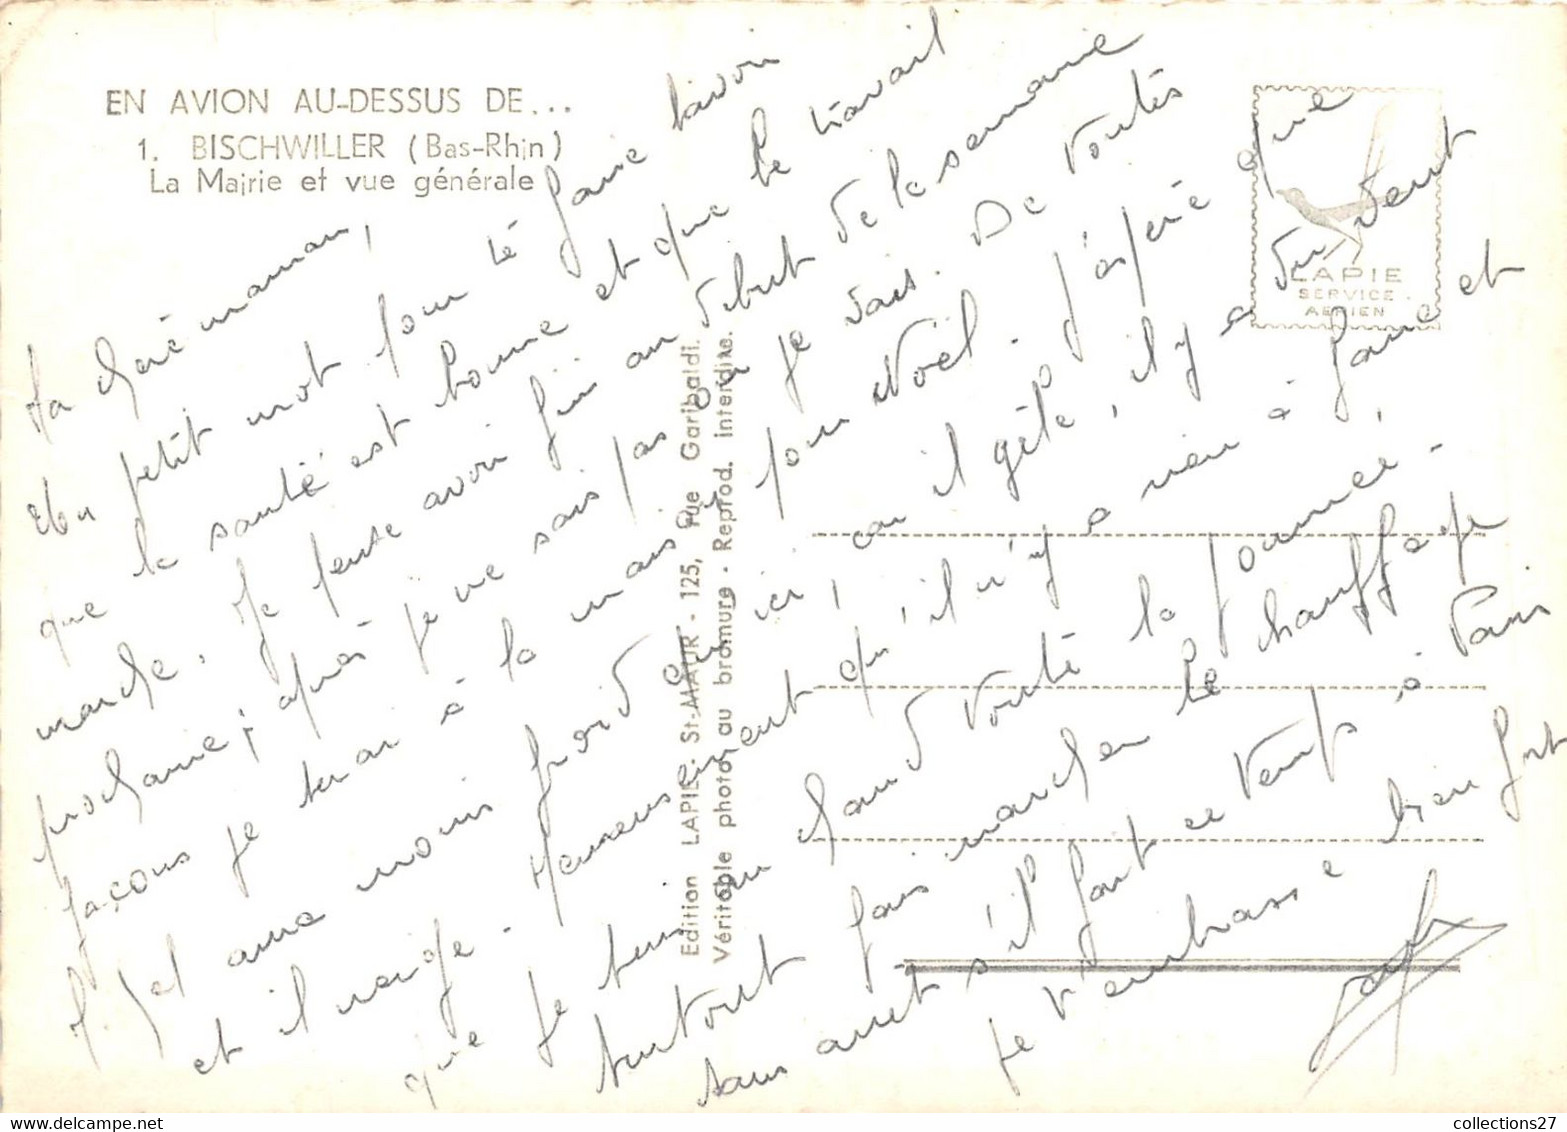 EN AVION AU-DESSUS DE...
1. BISCHWILLER (Bas-Rhin)
La Mairie et vue générale
LAPIE
SERVICE.
AERIEN
Edition LAPIE. St-MAUR - 125, rue Garibaldi.
Véritable photo au bromure - Reprod. interdite.
Ma chère maman,
Un petit mot pour te faire savoir
que la santé est bonne et que le travail
marche. Je pense avoir fini au début de la semaine
prochaine; après je ne sais pas où je vais. De toutes
façons je serai à la maison pour Noël. J'espère que
tu auras moins froid qu'ici, car il gèle, il y a du vent et
et il neige. Heureusement qu'il n'y a rien à faire
que je suis au chaud toute la journée.
surtout fais marcher le chauffage
sans arrêt s'il fait ce temps à Paris
je t'embrasse bien fort
collections27